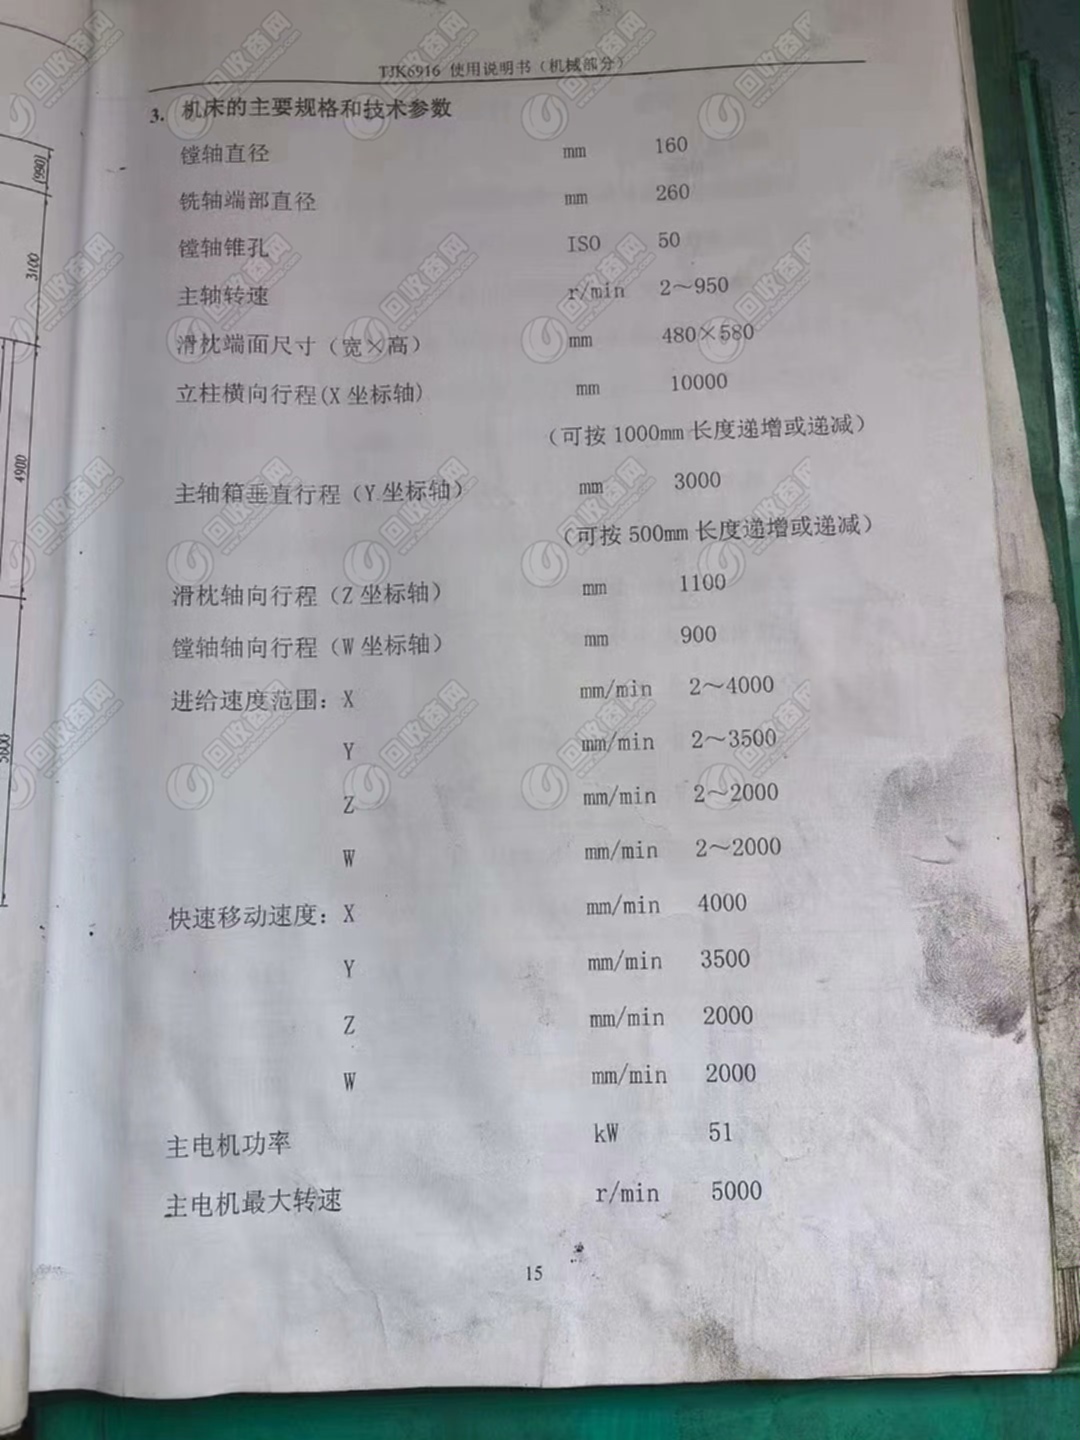 TJK6916 使用说明书（机械部分）
3. 机床的主要规格和技术参数
镗轴直径 mm 160
铣轴端部直径 mm 260
镗轴锥孔 ISO 50
主轴转速 r/min 2～950
滑枕端面尺寸（宽×高） mm 480×580
立柱横向行程(X 坐标轴) mm 10000
（可按 1000mm 长度递增或递减）
主轴箱垂直行程（Y 坐标轴） mm 3000
（可按 500mm 长度递增或递减）
滑枕轴向行程（Z 坐标轴） mm 1100
镗轴轴向行程（W 坐标轴） mm 900
进给速度范围: X mm/min 2～4000
Y mm/min 2～3500
Z mm/min 2～2000
W mm/min 2～2000
快速移动速度: X mm/min 4000
Y mm/min 3500
Z mm/min 2000
W mm/min 2000
主电机功率 kW 51
主电机最大转速 r/min 5000
15
(990)
3100
4900
回收商网